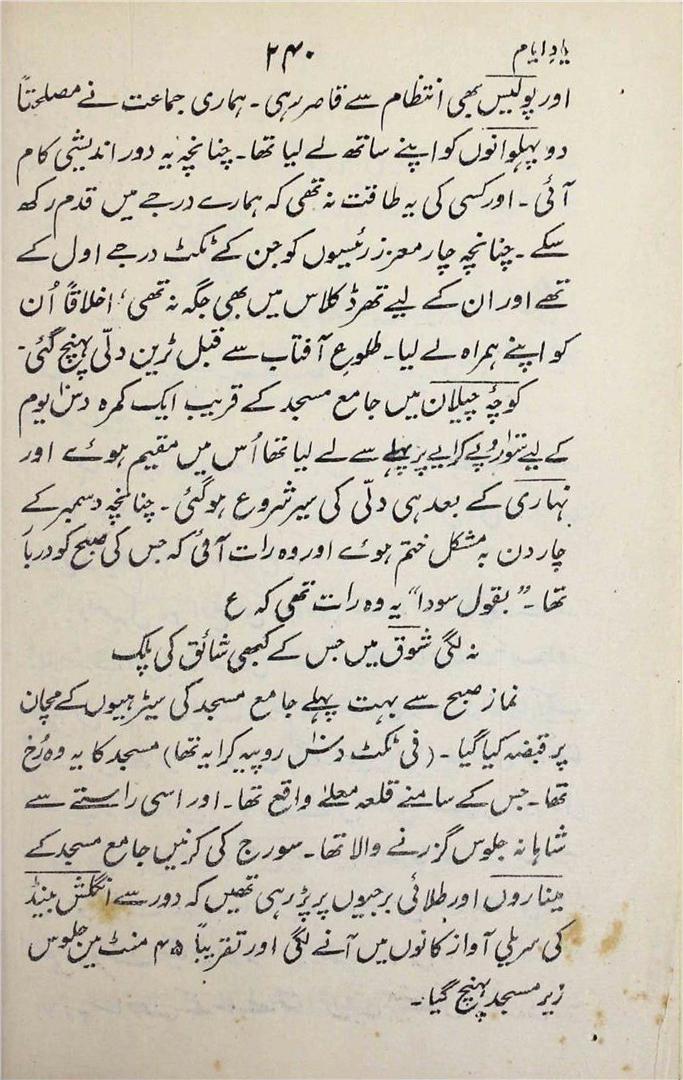 یادِ ایام ۲۴۰
اور پولیس بھی انتظام سے قاصر رہی۔ ہماری جماعت نے مصلحتاً
دو پہلوانوں کو اپنے ساتھ لے لیا تھا۔ چنانچہ یہ دور اندیشی کام
آئی۔ اور کسی کی یہ طاقت نہ تھی کہ ہمارے درجے میں قدم رکھ
سکے۔ چنانچہ چار معزز رئیسوں کو جن کے ٹکٹ درجے اول کے
تھے اور ان کے لیے تھرڈ کلاس میں بھی جگہ نہ تھی، اخلاقاً اُن
کو اپنے ہمراہ لے لیا۔ طلوعِ آفتاب سے قبل ٹرین دلّی پہنچ گئی۔
کوچۂ چیلان میں جامع مسجد کے قریب ایک کمرہ دس یوم
کے لیے سَو روپے کرایے پر پہلے سے لے لیا تھا اُس میں مقیم ہوئے اور
نہاری کے بعد ہی دلّی کی سیر شروع ہو گئی۔ چنانچہ دسمبر کے
چار دن بہ مشکل ختم ہوئے اور وہ رات آئی کہ جس کی صبح کو دربار
تھا۔ "بقول سودا" یہ وہ رات تھی کہ ع
نہ لگی شوق میں جس کے کبھی شائق کی پلک
نماز صبح سے بہت پہلے جامع مسجد کی سیڑھیوں کے مچان
پر قبضہ کیا گیا۔ (فی ٹکٹ دس روپیہ کرایہ تھا) مسجد کا یہ وہ رُخ
تھا۔ جس کے سامنے قلعہ معلےٰ واقع تھا۔ اور اسی راستے سے
شاہانہ جلوس گزرنے والا تھا۔ سورج کی کرنیں جامع مسجد کے
میناروں اور طلائی برجیوں پر پڑ رہی تھیں کہ دور سے انگلش بینڈ
کی سریلی آواز کانوں میں آنے لگی اور تقریباً ۴۵ منٹ میں جلوس
زیر مسجد پہنچ گیا۔